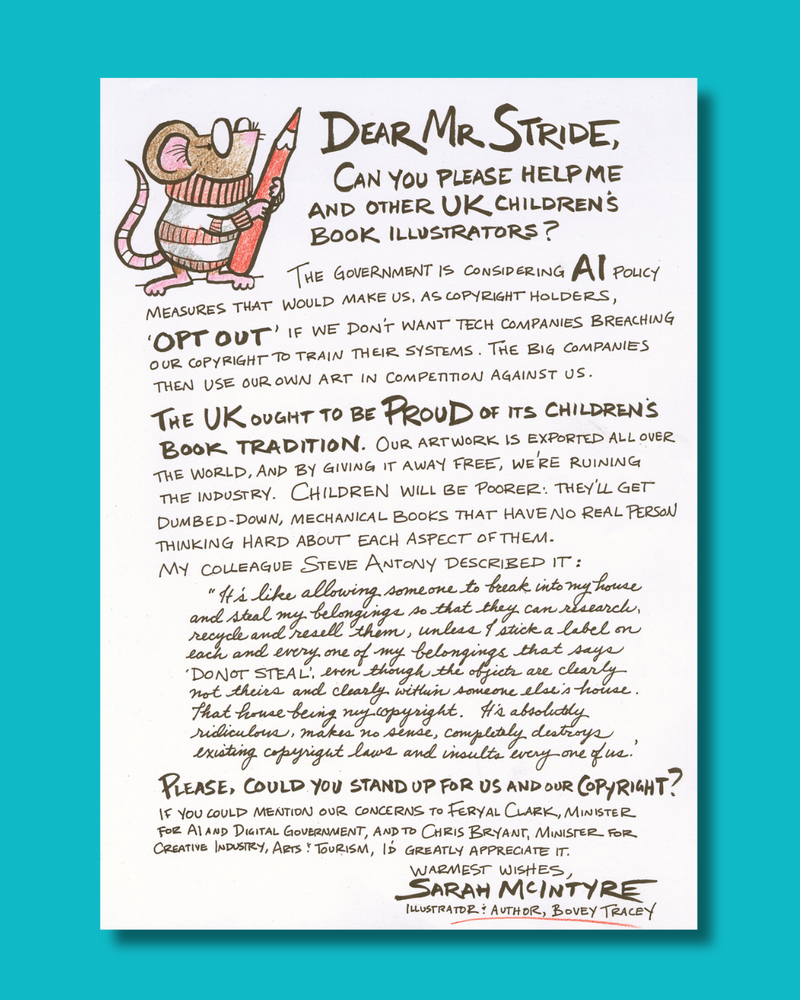 DEAR MR STRIDE,
CAN YOU PLEASE HELP ME
AND OTHER UK CHILDREN'S
BOOK ILLUSTRATORS?
THE GOVERNMENT IS CONSIDERING AI POLICY
MEASURES THAT WOULD MAKE US, AS COPYRIGHT HOLDERS,
'OPT OUT' IF WE DON'T WANT TECH COMPANIES BREACHING
OUR COPYRIGHT TO TRAIN THEIR SYSTEMS. THE BIG COMPANIES
THEN USE OUR OWN ART IN COMPETITION AGAINST US.
THE UK OUGHT TO BE PROUD OF ITS CHILDREN'S
BOOK TRADITION. OUR ARTWORK IS EXPORTED ALL OVER
THE WORLD, AND BY GIVING IT AWAY FREE, WE'RE RUINING
THE INDUSTRY. CHILDREN WILL BE POORER: THEY'LL GET
DUMBED-DOWN, MECHANICAL BOOKS THAT HAVE NO REAL PERSON
THINKING HARD ABOUT EACH ASPECT OF THEM.
MY COLLEAGUE STEVE ANTONY DESCRIBED IT:
"It's like allowing someone to break into my house
and steal my belongings so that they can research,
recycle and resell them, unless I stick a label on
each and every one of my belongings that says
'DO NOT STEAL', even though the objects are clearly
not theirs and clearly within someone else's house.
That house being my copyright. It's absolutely
ridiculous, makes no sense, completely destroys
existing copyright laws and insults every one of us.'
PLEASE, COULD YOU STAND UP FOR US AND OUR COPYRIGHT?
IF YOU COULD MENTION OUR CONCERNS TO FERYAL CLARK, MINISTER
FOR AI AND DIGITAL GOVERNMENT, AND TO CHRIS BRYANT, MINISTER FOR
CREATIVE INDUSTRY, ARTS & TOURISM, I'D GREATLY APPRECIATE IT.
WARMEST WISHES,
SARAH MCINTYRE
ILLUSTRATOR & AUTHOR, BOVEY TRACEY